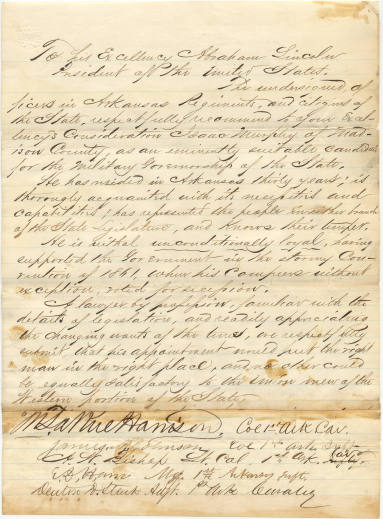 To His Excellency Abraham Lincoln
President of the United States.
The undersigned of
ficers in Arkansas Regiments, and citizens of
the State, respectfully recommend to your Excel
lency's Consideration Isaac Murphy of Mad
ison County, as an eminently suitable candidate
for the Military Governorship of the State.
He has resided in Arkansas thirty years; is
thoroughly acquainted with its necessities and
capabilities; has represented the people in either branch
of the State Legislature, and knows their temper.
He is withal unconditionally loyal, having
supported the Government in the stormy Con-
vention of 1861, when his Compeers without
exception, voted for secession.
A lawyer by profession, familiar with the
details of legislation, and readily appreciating
the changing wants of the times, we respectfully
submit that his appointment would put the right
man in the right place, and no other could
be equally satisfactory to the Union men of the
Western portion of the State.
M. LaRue Harrison, Col 1st Ark Cav.
Johnson Col 1st Ark Inft
A. W. Bishop Lt. Col. 1st Ark. Cav.
Maj. 1st Arkansas Inft,
Adjt. 1st Ark Cavalry